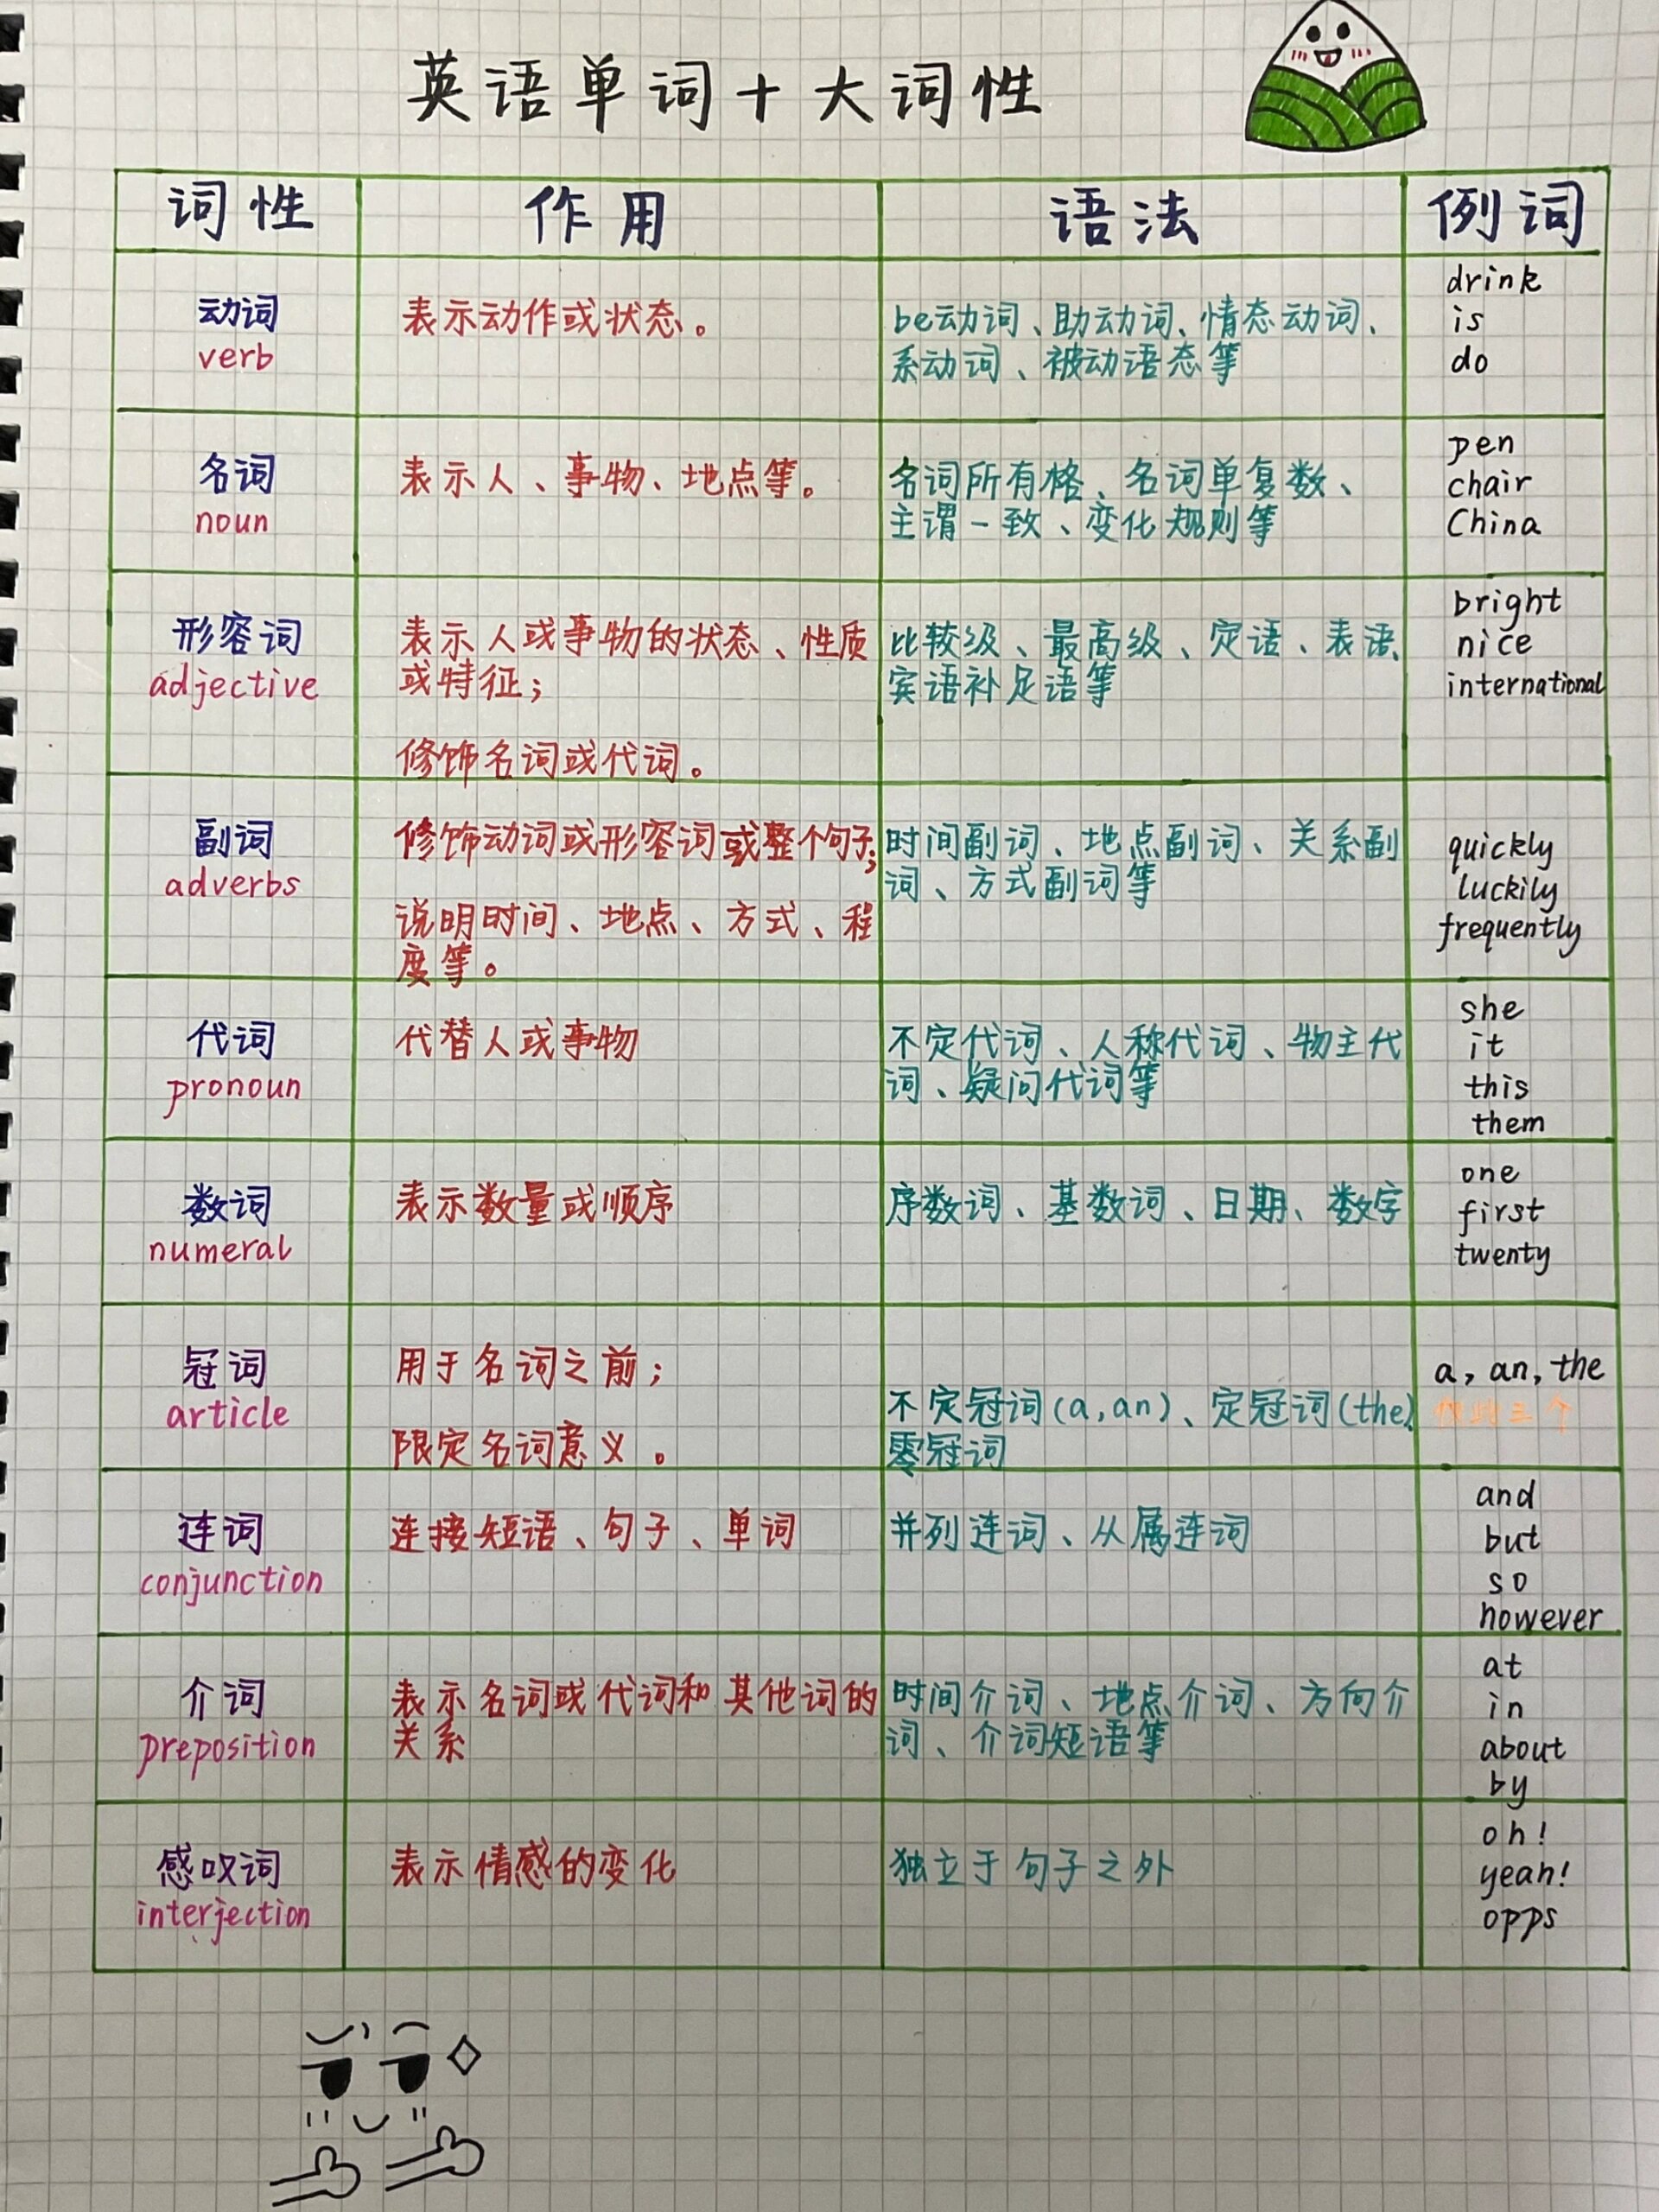 英语单词十大词性
词性 作用 语法 例词
动词
verb
表示动作或状态。
be动词、助动词、情态动词、
系动词、被动语态等
drink
is
do
名词
noun
表示人、事物、地点等。
名词所有格、名词单复数、
主谓一致、变化规则等
pen
chair
China
形容词
adjective
表示人或事物的状态、性质
或特征;
修饰名词或代词。
比较级、最高级、定语、表语、
宾语补足语等
bright
nice
international
副词
adverbs
修饰动词或形容词或整个句子;
说明时间、地点、方式、程
度等。
时间副词、地点副词、关系副
词、方式副词等
quickly
luckily
frequently
代词
pronoun
代替人或事物
不定代词、人称代词、物主代
词、疑问代词等
she
it
this
them
数词
numeral
表示数量或顺序
序数词、基数词、日期、数字
one
first
twenty
冠词
article
用于名词之前;
限定名词意义。
不定冠词(a,an)、定冠词(the)、
零冠词
a, an, the
三个
连词
conjunction
连接短语、句子、单词
并列连词、从属连词
and
but
so
however
介词
preposition
表示名词或代词和其他词的
关系
时间介词、地点介词、方向介
词、介词短语等
at
in
about
by
感叹词
interjection
表示情感的变化
独立于句子之外
oh!
yeah!
opps